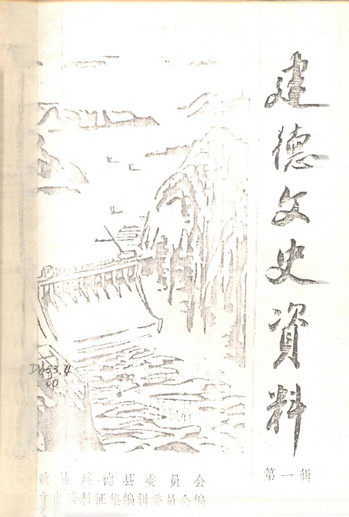 建德文史資料
第一辑
政协建德县委员会
文史资料征集编辑委员会编